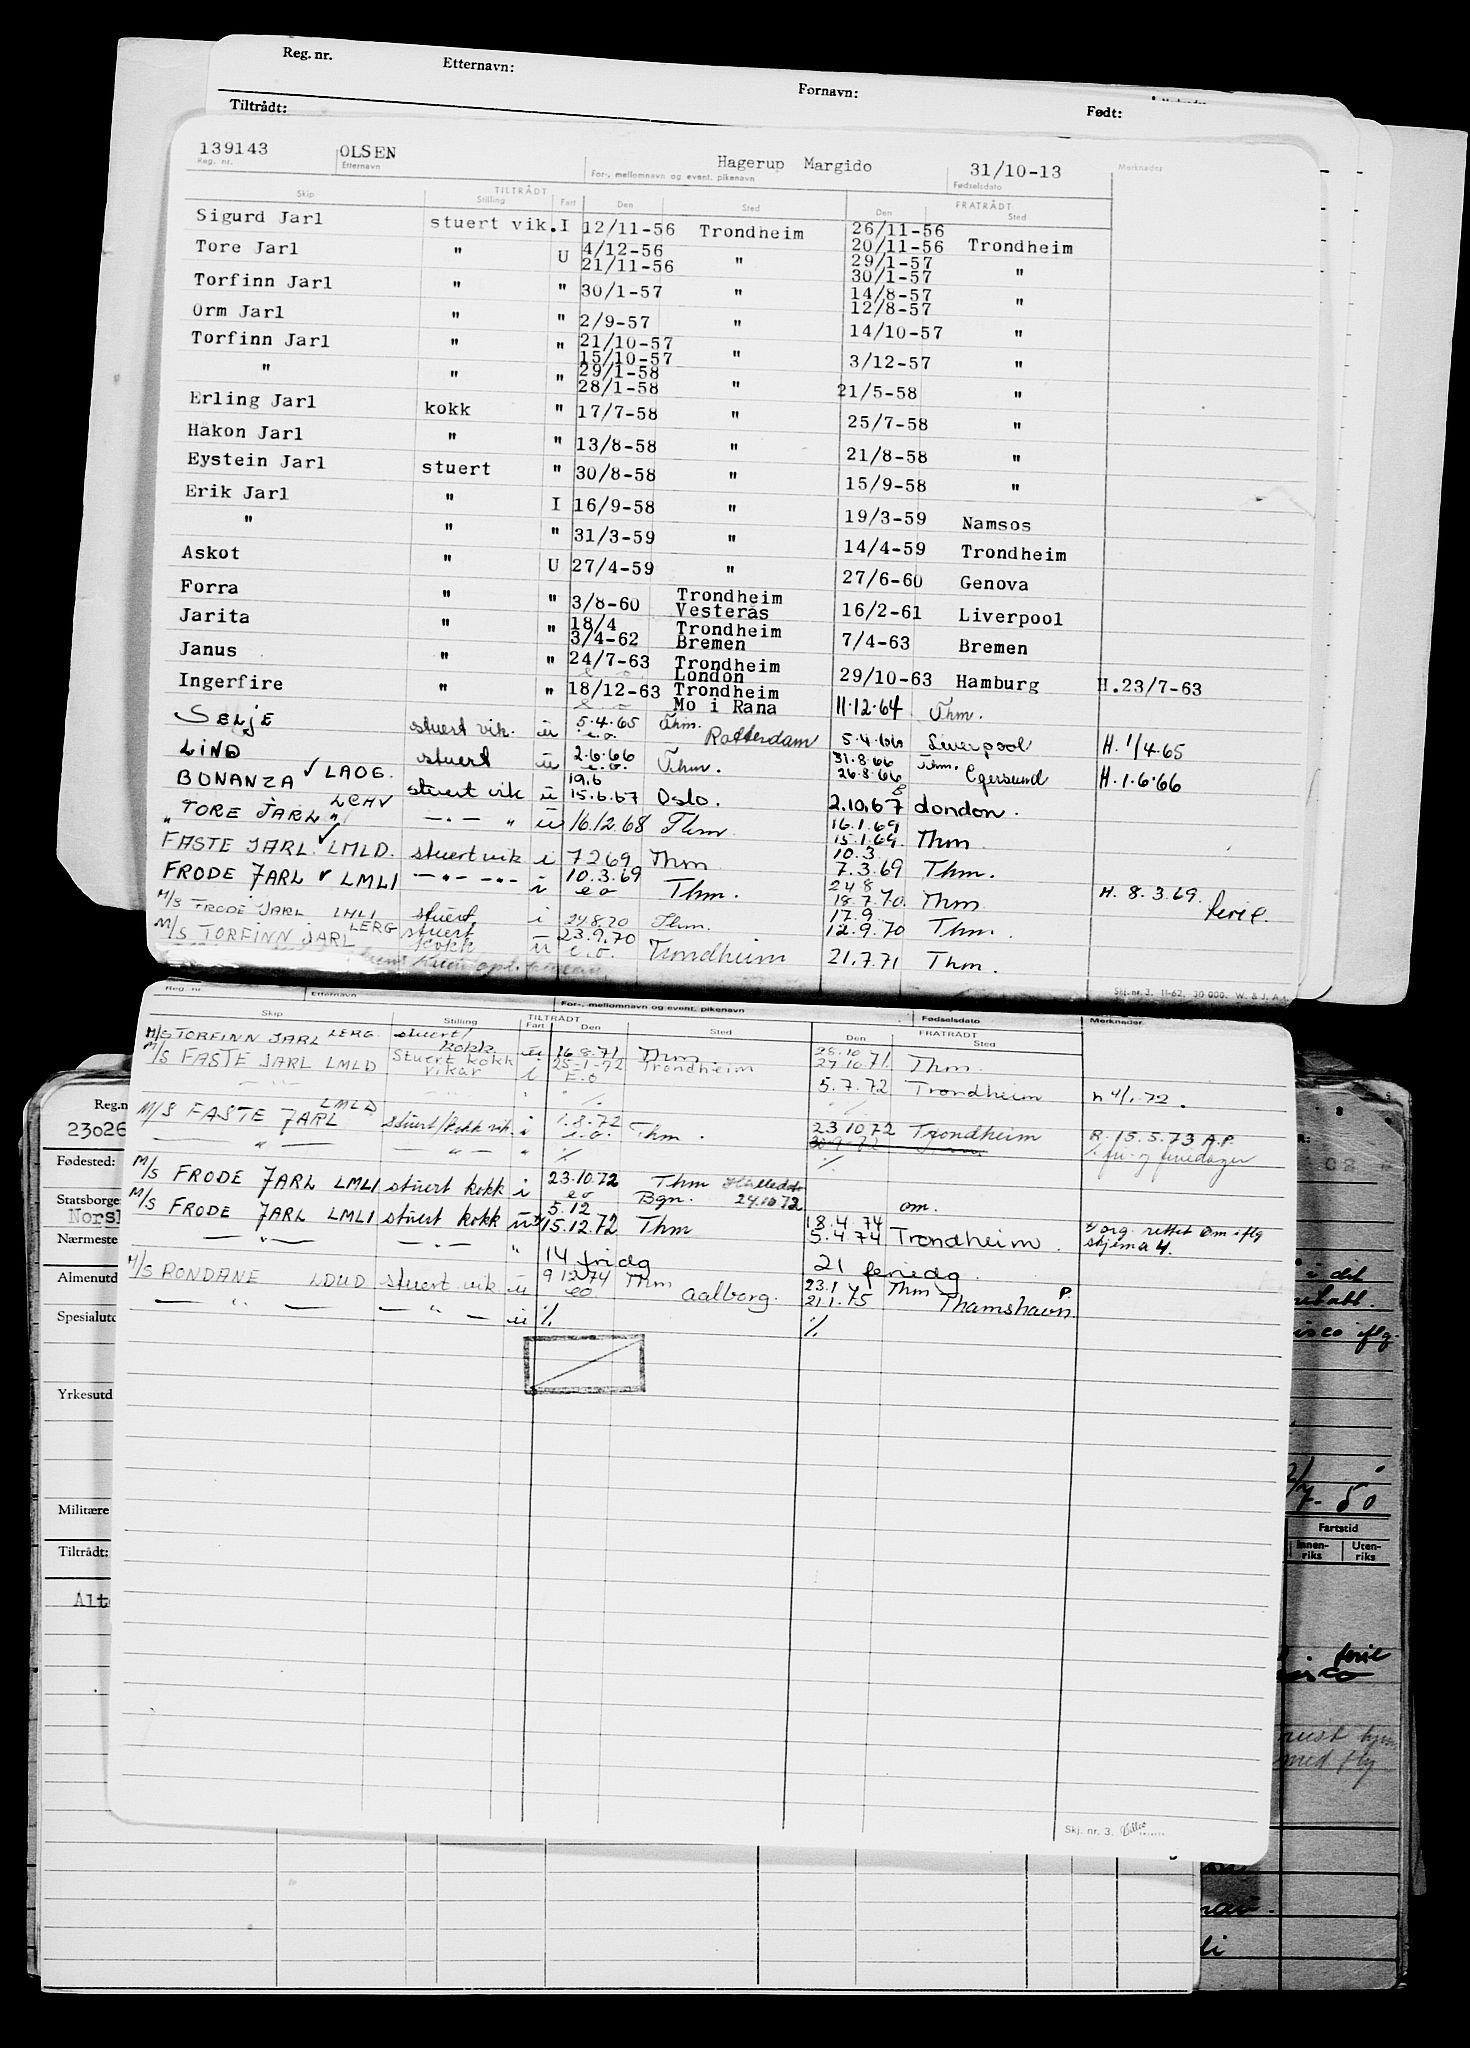 Reg. nr. Etternavn: Fornavn: Født:
Tiltrådt:
139143 OLSEN Hagerup Margido 31/10-13
Reg. nr. Etternavn For-, mellomnavn og event. pikenavn Fødselsdato Merknader
TILTRÅDT FRATRÅDT
Skip Stilling Fart Den Sted Den Sted
Sigurd Jarl stuert vik. I 12/11-56 Trondheim 26/11-56
20/11-56 Trondheim
Tore Jarl " U 4/12-56 21/11-56 " 29/1-57 30/1-57 "
Torfinn Jarl " " 30/1-57 " 14/8-57 12/8-57 "
Orm Jarl " " 2/9-57 " 14/10-57 "
Torfinn Jarl " " 21/10-57 15/10-57 " 3/12-57 "
" " " 29/1-58 28/1-58 " 21/5-58 "
Erling Jarl kokk " 17/7-58 " 25/7-58 "
Håkon Jarl " " 13/8-58 " 21/8-58 "
Eystein Jarl stuert " 30/8-58 " 15/9-58 "
Erik Jarl " I 16/9-58 " 19/3-59 Namsos
" " " 31/3-59 " 14/4-59 Trondheim
Askot " U 27/4-59 " 27/6-60 Genova
Forra " " 3/8-60 Trondheim Vesterås 16/2-61 Liverpool
Jarita " " 18/4 3/4-62 Trondheim Bremen 7/4-63 Bremen
Janus " " 24/7-63 Trondheim London 29/10-63 Hamburg H.23/7-63
Ingerfire " " 18/12-63 Trondheim Mo i Rana 11.12.64 Thm.
SELJE stuert vik. u 5.4.65 e.o. Thm. Rotterdam 5.4.66 Liverpool H. 1/4.65
LIND stuert u 2.6.66 e.o. Thm. 31.8.66 26.8.66 Thm. Egersund H.1.6.66
BONANZA ✓ LAOG. stuert vik u 19.6 15.6.67 Oslo. 2.10.67 London.
" TORE JARL " LCHV — " — " u 16.12.68 Thm. 16.1.69 15.1.69. Thm
FASTE JARL ✓ LMLD. stuert vik i 7 2 69 Thm 10.3. 7.3.69 Thm.
FRODE JARL ✓ LMLI — " — — " — i 10.3.69 e o Thm. 24 8 18.7.70. Thm H. 8.3.69. ferie.
M/S FRODE JARL LMLI stuert i 24.8.70 Thm. 17.9. 12.9.70 Thm.
M/S TORFINN JARL LERG stuert kokk u 23.9.70 e.o. Trondheim 21.7.71 Thm.
Skj. nr. 3. 11-62. 30 000. W. & J. A.
Reg. nr. Etternavn For-, mellomnavn og event. pikenavn Fødselsdato Merknader
TILTRÅDT FRATRÅDT
Skip Stilling Fart Den Sted Den Sted
M/S TORFINN JARL LERG. stuert/ kokk u 16.8.71 Thm. 28.10 27.10.71. Thm.
M/S FASTE JARL LMLD Stuert kokk vikar i 25-1-72 E.o Trondheim 5.7.72 Trondheim n 4/1.72.
— " — " ./. ./.
M/S FASTE JARL LMLD stuert/kokk vik. i 1.8.72 e.o. Thm. 23 10 72 30.9.72 Trondheim R. 15.5.73 A.P.
— " — — " — " ./. ./. ./. fri- og feriedager
M/S FRODE JARL LMLI stuert kokk i 23.10.72 e o Thm 24.10.72
M/S FRODE JARL LMLI stuert kokk u 5.12 15.12.72 Bgn. Thm 18.4.74 5.4.74 om. Trondheim. x/ org. rettet om iflg skjema 4.
— " — — " — " 14 fridg 21 feriedg.
M/S RONDANE LDUD stuert vik u 9 12 74 eo Thm Aalborg. 23.1 21.1.75 Thm Thamshavn P.
— " — — " — u ./. ./.
Skj. nr. 3.
Reg.n
23026
Fødested:
Statsborge
Norsk
Nærmeste
Almenutd
Spesialutd
Yrkesutd
Militære
Tiltrådt:
Alt
i det
isco iflg.
/7-50
Fartstid
Innen-riks Uten-riks
ferie
isco
med fly